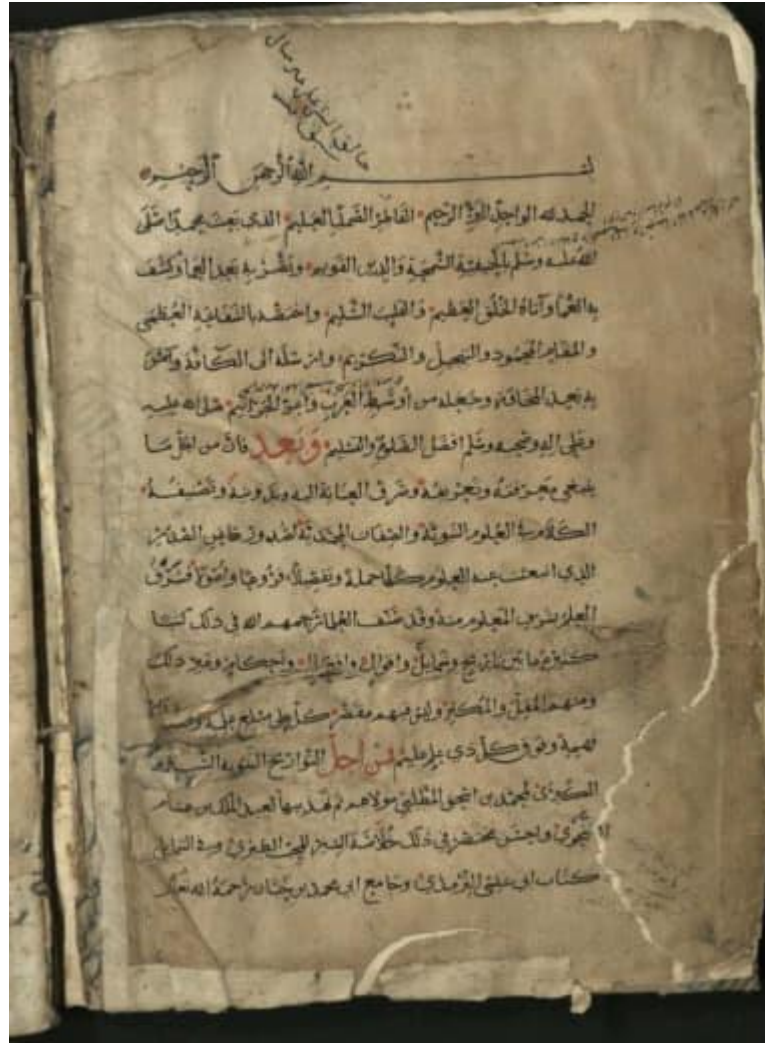 بسم الله الرحمن الرحيم
الحمد لله الواحد البر الرحيم الفاطر الصمد العليم الذي بعث محمدا صلى
الله عليه وسلم بالحنيفية السمحة والدين القويم وبصر به بعد العما وكشف
به الغما وآتاه الخلق العظيم والقلب السليم واختصه بالشفاعة العظمى
والمقام المحمود والتبجيل والتكريم وارسله الى الكافة
به بعد المخافة وجعله من أوسط العرب صلى الله عليه
وعلى اله وصحبه وسلم افضل الصلوة والتسليم وبعد فان من اجل ما
ينبغي معرفته وصرف العناية اليه وتدوينه وتصنيفه
الكلام في العلوم النبوية والصفات المحمدية
الذي انبعثت عنه العلوم كلها جملة وتفصيلا فروعا واصولا فشرف
العلم بشرف المعلوم منه وقد صنف العلما رحمهم الله في ذلك كتبا
كثيرة ما بين تاريخ وشمايل واقوال وافعال واحكام وغير ذلك
ومنهم المقل والمكثر وليس فيهم مقصر كل على مبلغ علمه
فهمه وفوق كل ذي علم عليم فمن اجل التواريخ النبوية السير
الكبرى لمحمد بن اسحق المطلبي مولاهم ثم تهذيبها لعبد الملك بن هشام
واحسن مختصر في ذلك خلاصة السير للمحب الطبري وفي الشمايل
كتاب ابي عيسى الترمذي وجامع ابي محمد بن حيان رحمة الله